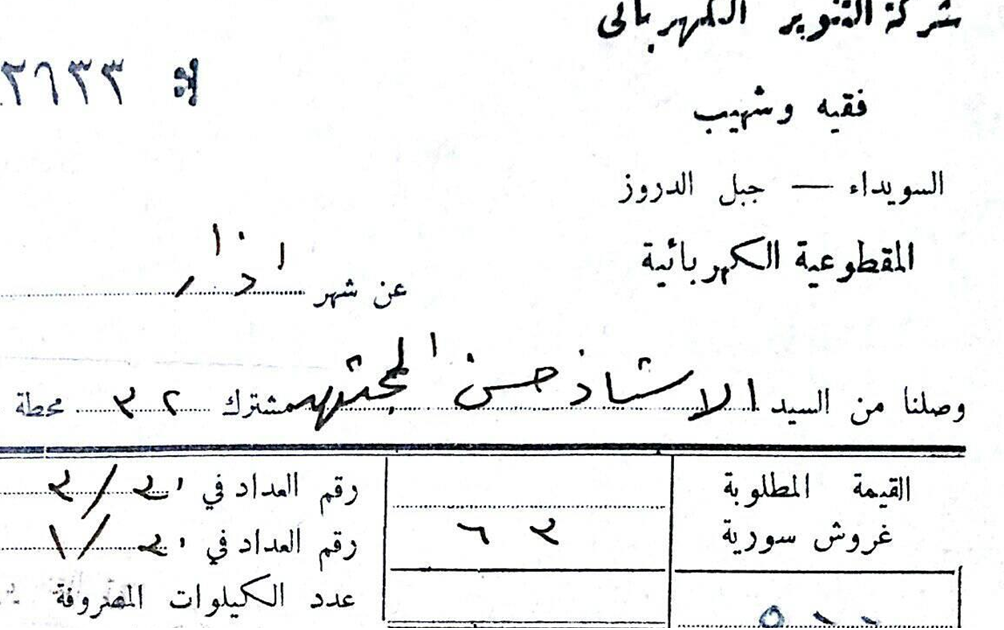 شركة التنوير الكهربائي
٢٦٣٣
فقيه وشهيب
السويداء — جبل الدروز
المقطوعية الكهربائية
عن شهر اذار
وصلنا من السيد الاستاذ حسن المجتهد مشترك ٣٢ محطة
القيمة المطلوبة
غروش سورية
رقم العداد في
رقم العداد في
عدد الكيلوات المصروفة